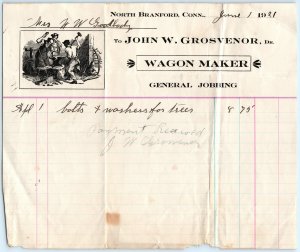 North Branford, Conn., June 1 1931
Mrs F W Goodbody
To JOHN W. GROSVENOR, Dr.
WAGON MAKER
GENERAL JOBBING
Apl 1 bolts & washers for trees 8 75
Payment Received
J W Grosvenor